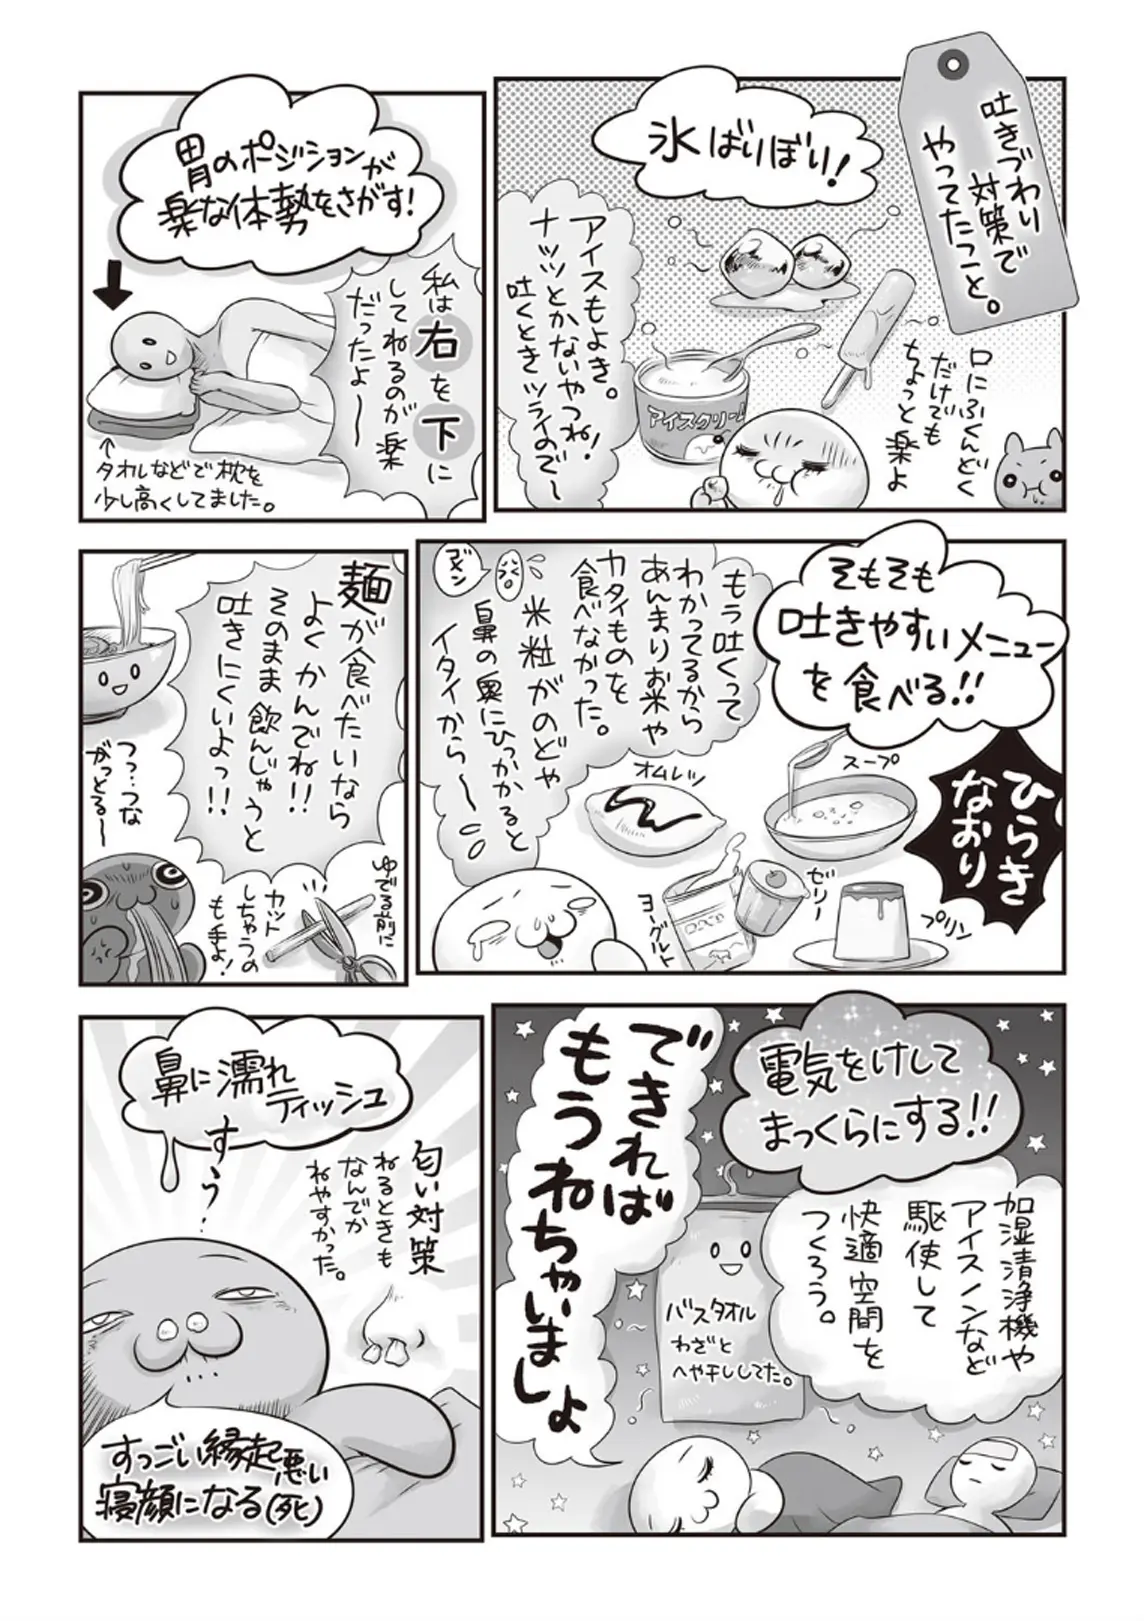 吐きづわり
対策で
やってたこと。
氷ばりぼり!
口にふくんどく
だけでも
ちょっと楽よ
アイスもよき。
ナッツとかないやつね!
吐くときツライので〜
アイスクリーム
胃のポジションが
楽な体勢をさがす!
私は右を下に
してねるのが楽
だったよ〜
↑
タオルなどで枕を
少し高くしてました。
そもそも
吐きやすいメニュー
を食べる!!
ひらき
なおり
もう吐くって
わかってるから
あんまりお米や
カタイものを
食べなかった。
米粒がのどや
鼻の奥にひっかかると
イタイから〜
ゴメン
スープ
オムレツ
ゼリー
プリン
ヨーグルト
麺が食べたいなら
よくかんでね!!
そのまま飲んじゃうと
吐きにくいよっ!!
つっ…つな
がっとる〜
ゆでる前に
カット
しちゃうの
も手よ!
電気をけして
まっくらにする!!
加湿清浄機や
アイスノンなど
駆使して
快適空間を
つくろう。
できれば
もうねちゃいましょ
バスタオル
わざと
へや干ししてた。
鼻に濡れ
ティッシュ
すぅ…
匂い対策
ねるときも
なんでか
ねやすかった。
すっごい縁起悪い
寝顔になる(死)